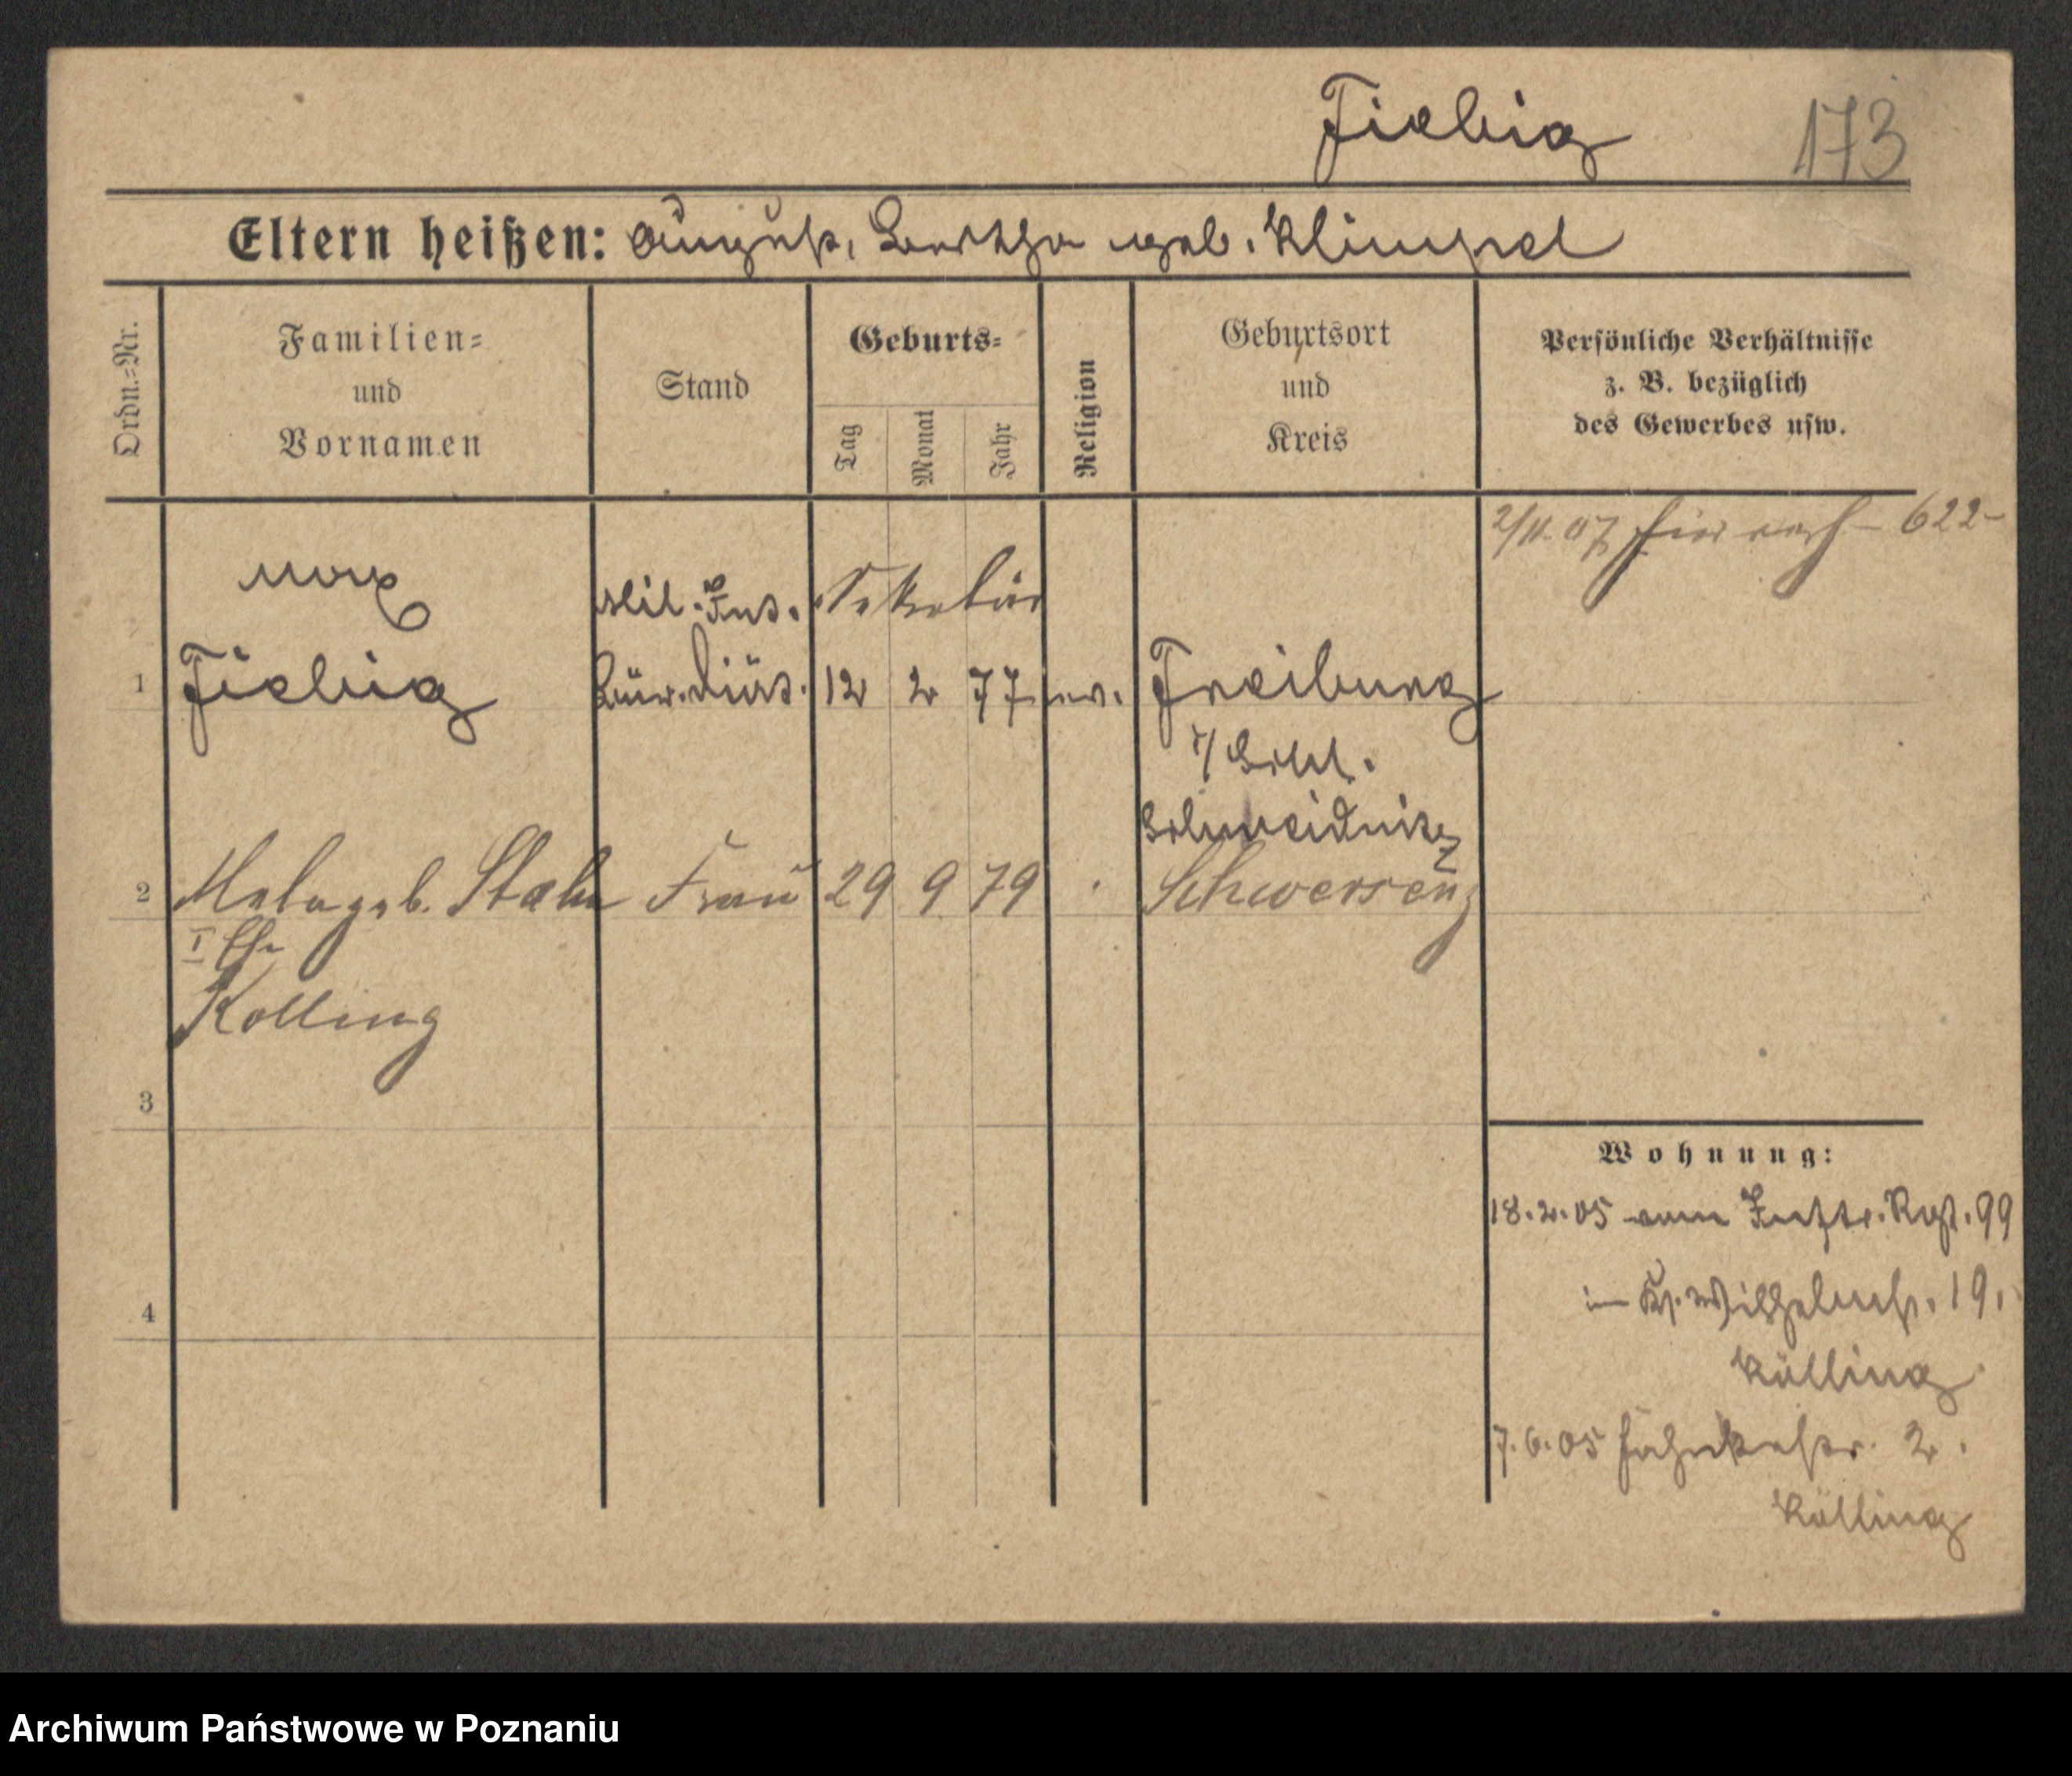 Fiebig 173
Eltern heißen: August, Bertha geb. Klimpel
Ordn.=Nr.
Familien=
und
Vornamen
Stand
Geburts=
Tag
Monat
Jahr
Religion
Geburtsort
und
Kreis
Persönliche Verhältnisse
z. B. bezüglich
des Gewerbes usw.
2/11.07 622-
Max
Mil. Int. Sekretär
1 Fiebig Bür. Diät. 12 2 77 ev. Freiburg
i/Schl.
Schweidnitz
2 Meta geb. Stahn Frau 29 9 79 Schwersenz
I Ehe
Kolling
3
Wohnung:
18.2.05 vom Inftr. Rgt. 99
in Kl. Wilhelmstr. 19.
Kölling
4
7.6.05 2.
Kölling
Archiwum Państwowe w Poznaniu